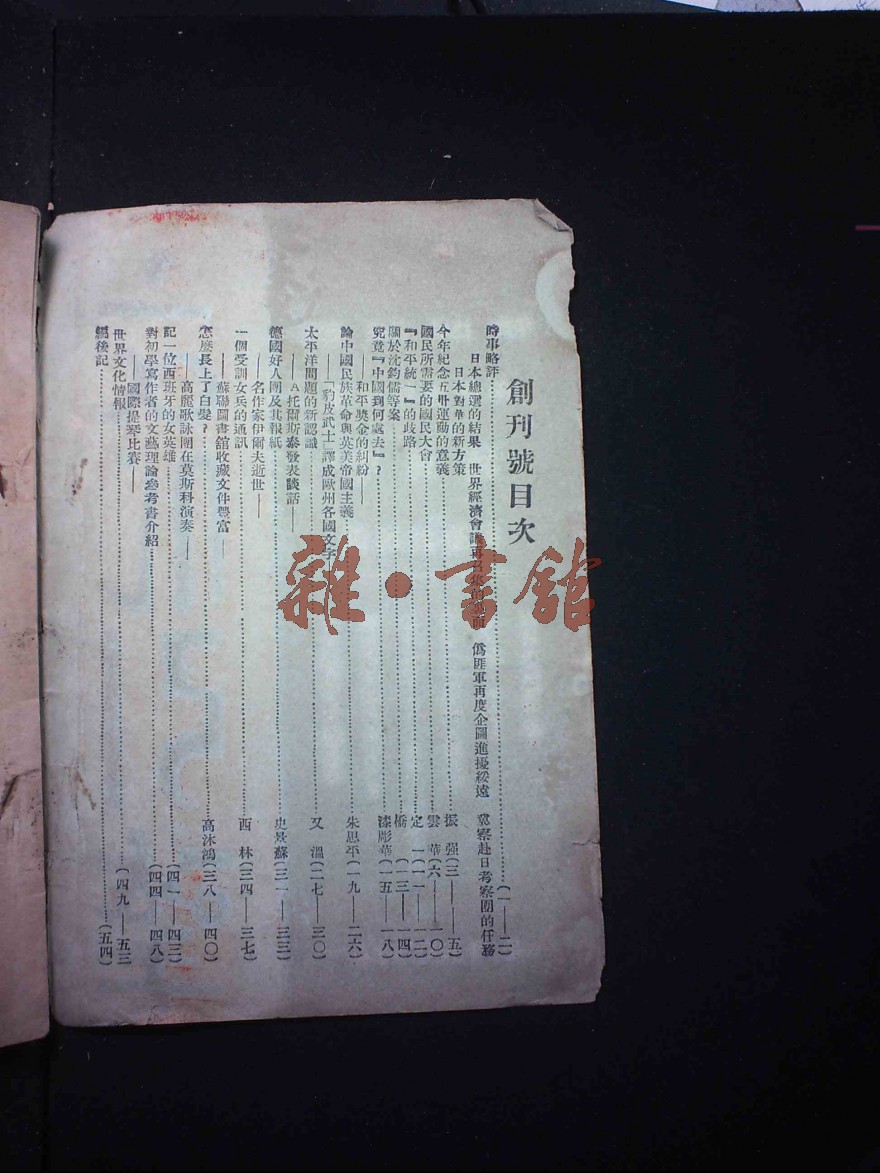 創刊號目次
時事略評……(一——二)
日本總選的結果 世界經濟會議再 僞匪軍再度企圖進擾綏遠 冀察赴日考察團的任務
日本對華的新方策
今年紀念五卅運動的意義……振 强(三——五)
國民所需要的國民大會……雲 華(六——一〇)
『和平統一』的歧路……定 一(一一——一二)
關於沈鈞儒等案……橋(一三——一四)
究竟『中國到何處去』?……漆彫華(一五——一八)
——和平奬金的糾紛——
論中國民族革命與英美帝國主義……朱思平(一九——二六)
——「豹皮武士」譯成歐州各國文字
太平洋問題的新認識……又 溫(二七——三〇)
——A托爾斯泰發表談話——
德國好人團及其報紙……史景蘇(三一——三三)
——名作家伊爾夫逝世——
一個受訓女兵的通訊……西 林(三四——三七)
——蘇聯圖書舘收藏文件豐富——
怎麼長上了白髮?……高沐鴻(三八——四〇)
——高麗歌詠團在莫斯科演奏——
記一位西班牙的女英雄……(四一——四三)
對初學寫作者的文藝理論參考書介紹……(四四——四八)
——國際提琴比賽——
世界文化情報……(四九——五三
編後記……(五四)
雜·書舘